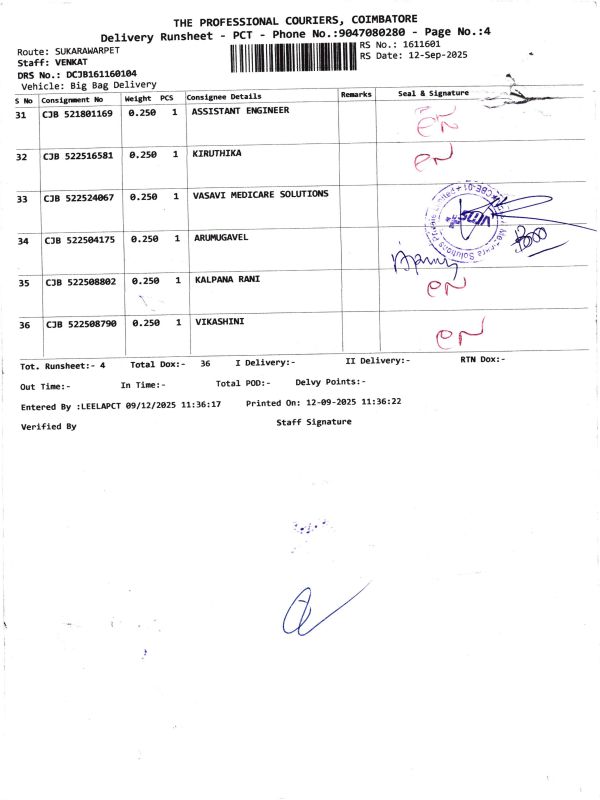 THE PROFESSIONAL COURIERS, COIMBATORE
Delivery Runsheet - PCT - Phone No.:9047080280 - Page No.:4
Route: SUKARAWARPET
RS No.: 1611601
Staff: VENKAT
RS Date: 12-Sep-2025
DRS No.: DCJB161160104
Vehicle: Big Bag Delivery
S No Consignment No Weight PCS Consignee Details Remarks Seal & Signature
31 CJB 521801169 0.250 1 ASSISTANT ENGINEER
32 CJB 522516581 0.250 1 KIRUTHIKA
33 CJB 522524067 0.250 1 VASAVI MEDICARE SOLUTIONS
34 CJB 522504175 0.250 1 ARUMUGAVEL
35 CJB 522508802 0.250 1 KALPANA RANI
36 CJB 522508790 0.250 1 VIKASHINI
Tot. Runsheet:- 4 Total Dox:- 36 I Delivery:- II Delivery:- RTN Dox:-
Out Time:- In Time:- Total POD:- Delvy Points:-
Entered By :LEELAPCT 09/12/2025 11:36:17 Printed On: 12-09-2025 11:36:22
Verified By Staff Signature